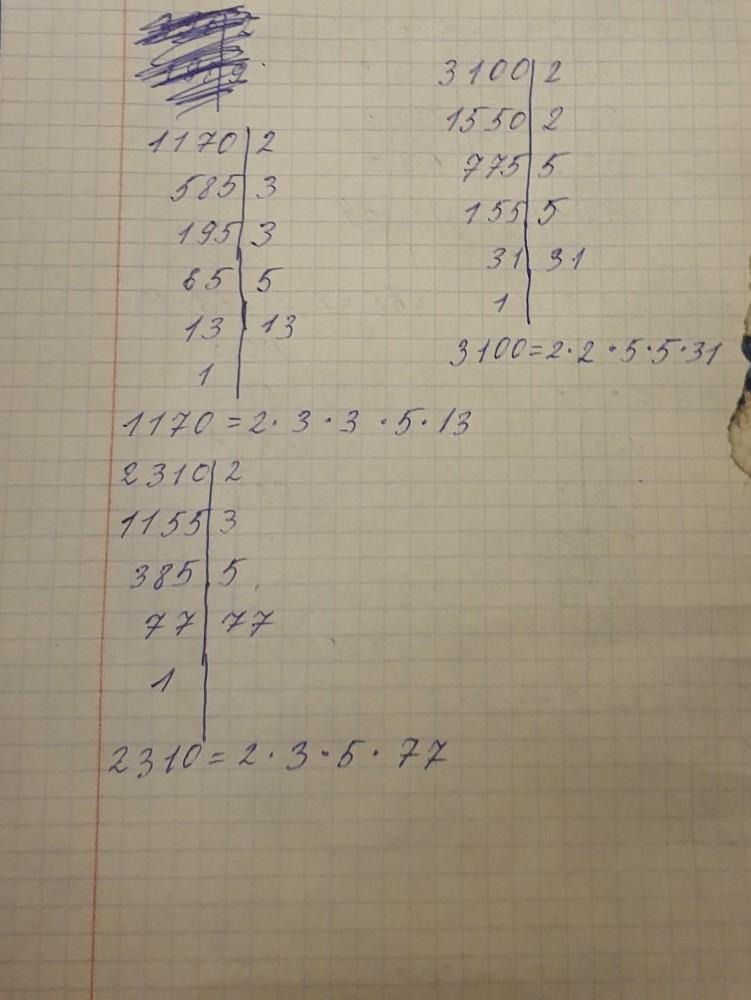 1170|2
585|3
195|3
65|5
13|13
1
1170=2·3·3·5·13
3100|2
1550|2
775|5
155|5
31|31
1
3100=2·2·5·5·31
2310|2
1155|3
385|5
77|77
1
2310=2·3·5·77